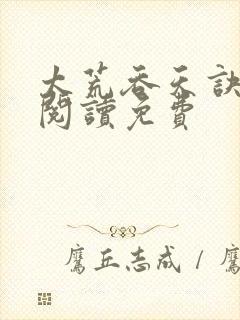 大荒吞天訣
閱讀免費
鷹丘志成 / 鷹